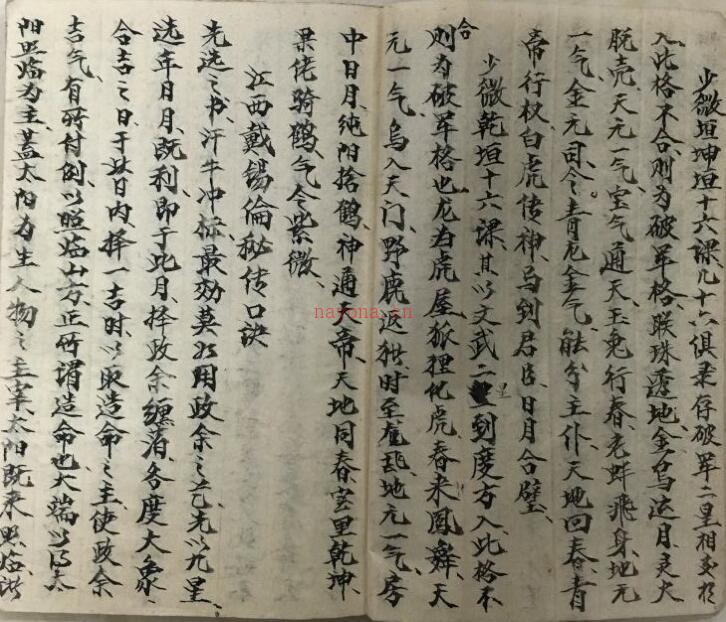 少微垣坤垣十六课凡十六俱来存破军二星相交於
入此格不合则为破军格、联珠透地、金乌达月、灵犬
脱壳、天元一气、宝气通天、玉兔行春、老蚌飛身、地元
一气、金元司令、青龙金气、能分主仆、天地回春、青
帝行权、白虎传神、马到君臣、日月合璧、
少微乾垣十六课、其以文武二星到度方入此格不
合则为破军格也、龙为虎屋、狐狸化虎、春来凤舞、天
元一气、乌入天门、野鹿返 时至 地元一气、房
中日月、纯阳捨鹤、神通天帝、天地同春、室里乾坤、
果佬骑鹤、气令紫微、
江西戴锡倫秘传口诀
先选之书、汗牛冲栋、最効莫如用政余之艺、先以九星
选年日月、既利、即于此月、择政余缠宿、各度大象
合吉之日、于此日内、择一吉时、以取造命之主、使政余
吉气、有所付倒、以照临山方、正所谓造命也、大端以得太
阳照临为主、蓋太阳为生人物之主宰、太阳既来照临、諸
nayona.cn